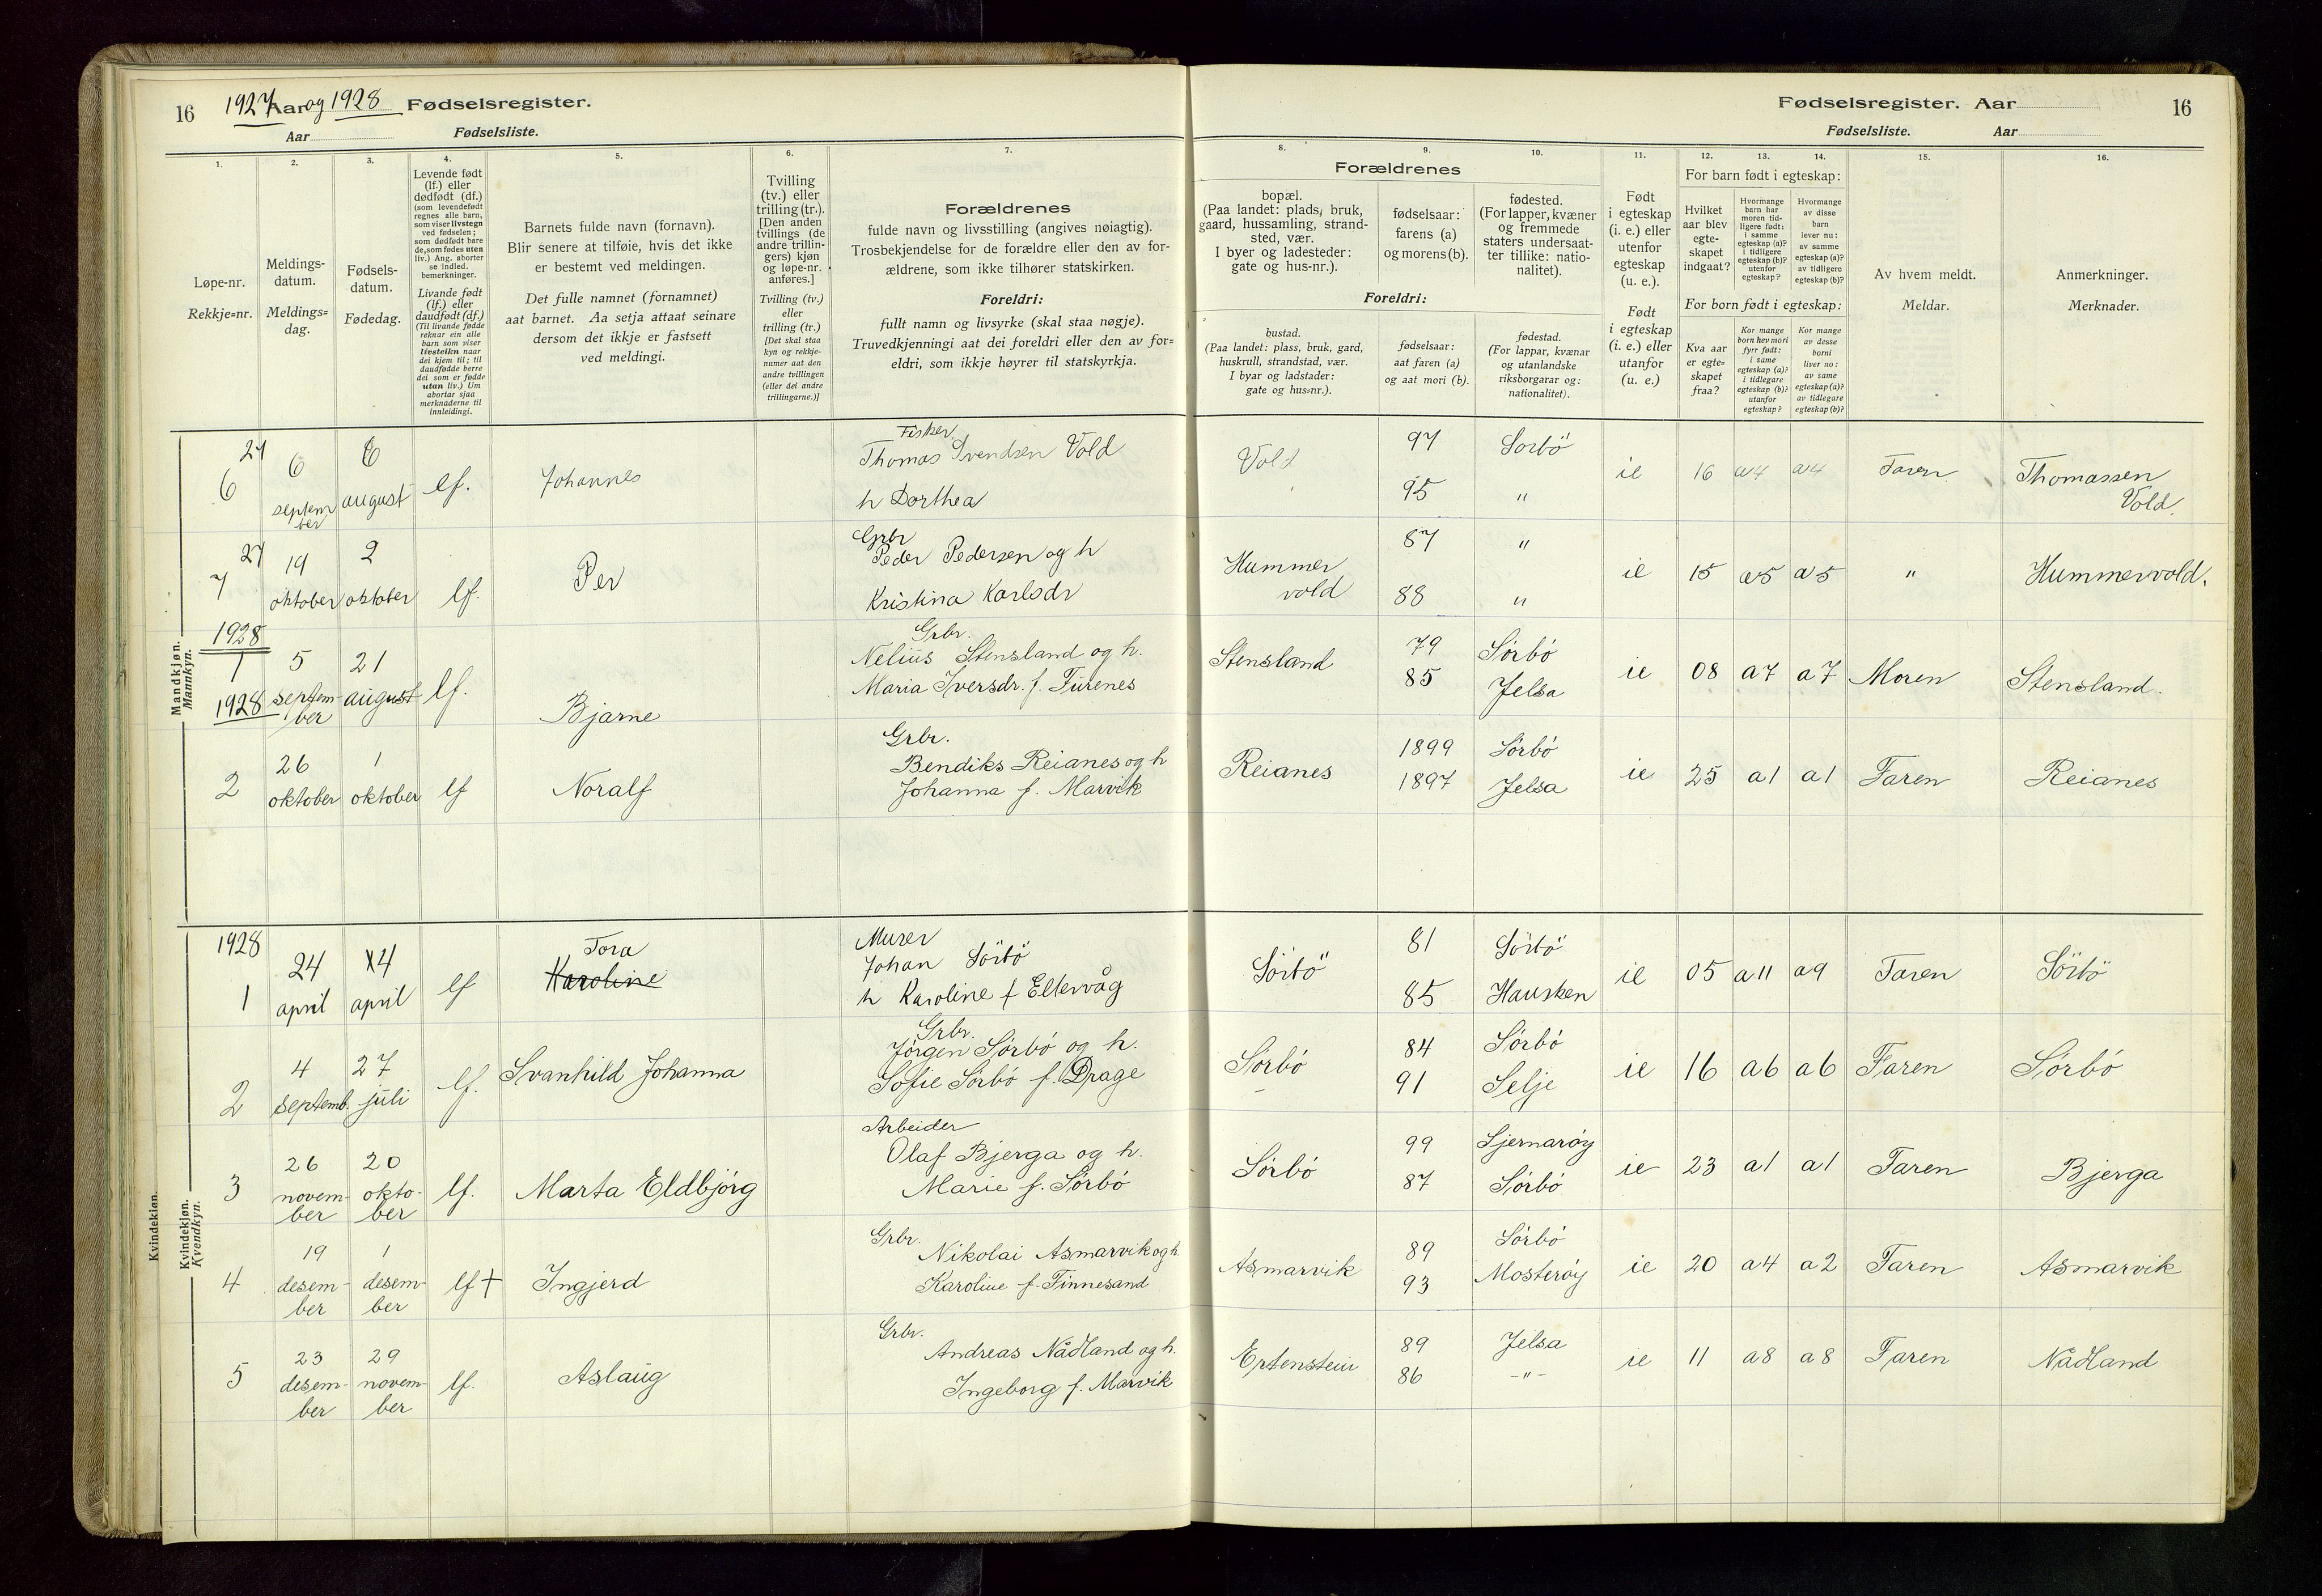 16 1927 Aar og 1928 Fødselsregister.
Aar Fødselsliste.
1.
Løpe-nr.
Rekkje=nr.
2.
Meldings-
datum.
Meldings=
dag.
3.
Fødsels-
datum.
Fødedag.
4.
Levende født
(lf.) eller
dødfødt (df.)
(som levendefødt
regnes alle barn,
som viser livstegn
ved fødselen;
som dødfødt bare
de, som fødes uten
liv.) Ang. aborter
se indled.
bemerkninger.
Livande født
(lf.) eller
daudfødt (df.)
(Til livande fødde
reknar ein alle
barn som viser
livsteikn naar
dei kjem til; til
daudfødde berre
dei som er fødde
utan liv.) Um
abortar sjaa
merknaderne til
innleidingi.
5.
Barnets fulde navn (fornavn).
Blir senere at tilføie, hvis det ikke
er bestemt ved meldingen.
Det fulle namnet (fornamnet)
aat barnet. Aa setja attaat seinare
dersom det ikkje er fastsett
ved meldingi.
6.
Tvilling
(tv.) eller
trilling (tr.).
[Den anden
tvillings (de
andre trillin-
gers) kjøn
og løpe-nr.
anføres.]
Tvilling (tv.)
eller
trilling (tr.)
[Det skal staa
kyn og rekkje-
numer aat den
andre tvillingen
(eller dei andre
trillingarne.)]
7.
Forældrenes
fulde navn og livsstilling (angives nøiagtig).
Trosbekjendelse for de forældre eller den av for-
ældrene, som ikke tilhører statskirken.
Foreldri:
fullt namn og livsyrke (skal staa nøgje).
Truvedkjenningi aat dei foreldri eller den av for=
eldri, som ikkje høyrer til statskyrkja.
Mandkjøn.
Mannkyn.
27
6
6
septem
ber
6
august
lf.
Johannes
Fisker
Thomas Svendsen Vold
h Dorthea
27
7
19
oktober
2
oktober
lf.
Per
Grbr
Peder Pedersen og h
Kristina Karlsdr
1928
1
1928
5
septem-
ber
21
august
lf.
Bjarne
Grbr.
Nelius Stensland og h.
Maria Iversdr. f. Furenes
2
26
oktober
1
oktober
lf
Noralf
Grbr.
Bendiks Reianes og h
Johanna f. Marvik
Kvindekjøn.
Kvindekjøn.
Kvendkyn.
1928
1
24
april
4
april
lf
Tora
Karoline
Murer
Johan Sörbö
h Karoline f Eltervåg
2
4
septemb.
27
juli
lf.
Svanhild Johanna
Grbr.
Jörgen Sörbö og h.
Sofie Sörbö f. Drage
3
26
novem-
ber
20
okto-
ber
lf.
Marta Eldbjörg
Arbeider
Olaf Bjerga og h.
Marie f. Sörbö
4
19
desem-
ber
1
desem-
ber
lf †
Ingjerd
Grbr.
Nikolai Asmarvik og h.
Karoline f. Finnesand
5
23
desem-
ber
29
novem-
ber
lf.
Aslaug
Grbr.
Andreas Nådland og h.
Ingeborg f. Marvik
Fødselsregister. Aar 16
Fødselsliste. Aar
Forældrenes
8.
bopæl.
(Paa landet: plads, bruk,
gaard, hussamling, strand-
sted, vær.
I byer og ladesteder:
gate og hus-nr.).
Foreldri:
bustad.
(Paa landet: plass, bruk, gard,
huskrull, strandstad, vær.
I byar og ladstader:
gate og hus=nr.).
9.
fødselsaar:
farens (a)
og morens (b).
fødselsaar:
aat faren (a)
og aat mori (b).
10.
fødested.
(For lapper, kvæner
og fremmede
staters undersaat-
ter tillike: natio-
nalitet).
fødestad.
(For lappar, kvænar
og utanlandske
riksborgarar og:
nationalitet).
11.
Født
i egteskap
(i. e.) eller
utenfor
egteskap
(u. e.).
Født
i egteskap
(i. e.) eller
utanfor
(u. e.)
For barn født i egteskap:
12.
Hvilket
aar blev
egte-
skapet
indgaat?
13.
Hvormange
barn har
moren tid-
ligere født:
i samme
egteskap (a)?
i tidligere
egteskap (b)?
utenfor
egteskap?
14.
Hvormange
av disse
barn
lever nu:
av samme
egteskap (a)?
av tidligere
egteskap (b)?
For born født i egteskap:
Kva aar
er egte=
skapet
fraa?
Kor mange
born hev mori
fyrr født:
i same
egteskap (a)?
i tidlegare
egteskap (b)?
utanfor
egteskap?
Kor mange
av desse
borni
liver no:
av same
egteskap (a)?
av tidlegare
egteskap (b)?
15.
Av hvem meldt.
Meldar.
16.
Anmerkninger.
Merknader.
Vold
97
95
Sorbö
"
ie 16 a4 a4 Faren
Thomassen
Vold.
Hummer
vold
87
88
"
"
ie 15 a5 a5 "
Hummervold.
Stensland
79
85
Sörbö
Jelsa
ie 08 a7 a7 Moren Stensland.
Reianes
1899
1897
Sörbö
Jelsa
ie 25 a1 a1 Faren Reianes
Sörbö
81
85
Sörbö
Hausken
ie 05 a11 a9 Faren Sörbö
Sörbö
84
91
Sörbö
Selje
ie 16 a6 a6 Faren Sörbö
Sörbö
99
87
Sjernaröy
Sörbö
ie 23 a1 a1 Faren Bjerga
Asmarvik
89
93
Sörbö
Mosteröy
ie 20 a4 a2 Faren Asmarvik
Ertenstein
89
86
Jelsa
-"-
ie 11 a8 a8 Faren Nådland